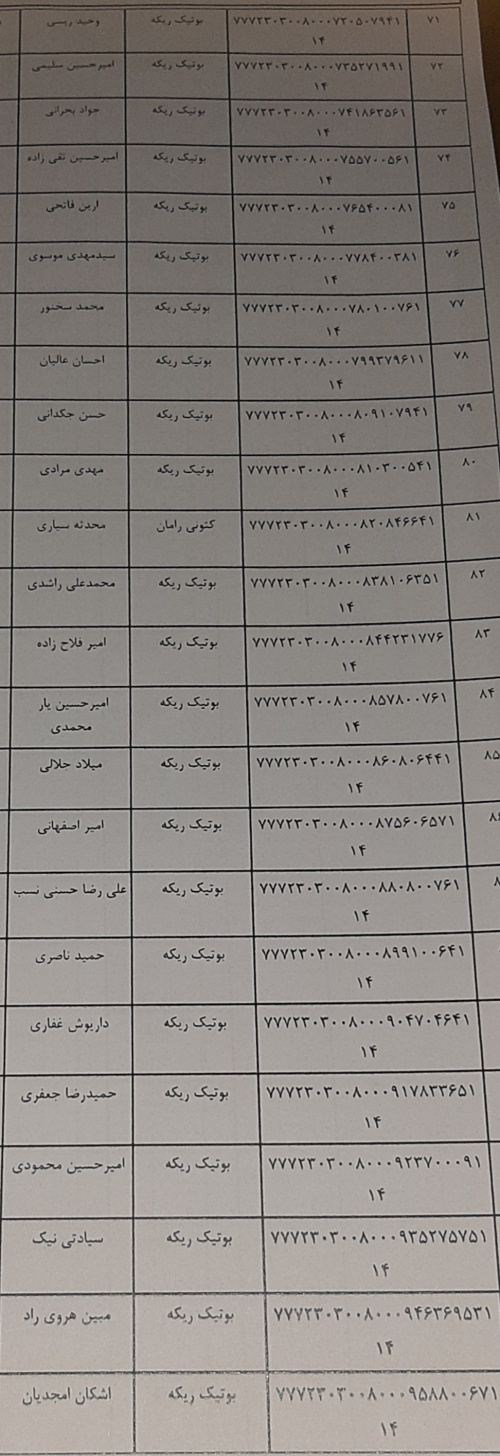 ۷۱ ۷۷۷۲۳۰۳۰۰۸۰۰۰۷۲۰۵۰۷۹۴۱ بوتیک ریکه وحید ریسی
۱۴
۷۲ ۷۷۷۲۳۰۳۰۰۸۰۰۰۷۳۵۲۷۱۹۹۱ بوتیک ریکه امیرحسین سلیمی
۱۴
۷۳ ۷۷۷۲۳۰۳۰۰۸۰۰۰۷۴۱۸۶۳۵۶۱ بوتیک ریکه جواد بحرانی
۱۴
۷۴ ۷۷۷۲۳۰۳۰۰۸۰۰۰۷۵۵۷۰۰۵۶۱ بوتیک ریکه امیرحسین تقی زاده
۱۴
۷۵ ۷۷۷۲۳۰۳۰۰۸۰۰۰۷۶۵۴۰۰۰۸۱ بوتیک ریکه آرین فاتحی
۱۴
۷۶ ۷۷۷۲۳۰۳۰۰۸۰۰۰۷۷۸۴۰۰۳۸۱ بوتیک ریکه سیدمهدی موسوی
۱۴
۷۷ ۷۷۷۲۳۰۳۰۰۸۰۰۰۷۸۰۱۰۰۷۶۱ بوتیک ریکه محمد سخنور
۱۴
۷۸ ۷۷۷۲۳۰۳۰۰۸۰۰۰۷۹۹۳۷۹۶۱۱ بوتیک ریکه احسان عالیان
۱۴
۷۹ ۷۷۷۲۳۰۳۰۰۸۰۰۰۸۰۹۱۰۷۹۴۱ بوتیک ریکه حسن جکدانی
۱۴
۸۰ ۷۷۷۲۳۰۳۰۰۸۰۰۰۸۱۰۳۰۰۵۴۱ بوتیک ریکه مهدی مرادی
۱۴
۸۱ ۷۷۷۲۳۰۳۰۰۸۰۰۰۸۲۰۸۴۶۶۴۱ کتونی رامان محدثه سیاری
۱۴
۸۲ ۷۷۷۲۳۰۳۰۰۸۰۰۰۸۳۸۱۰۶۳۵۱ بوتیک ریکه محمدعلی راشدی
۱۴
۸۳ ۷۷۷۲۳۰۳۰۰۸۰۰۰۸۴۴۲۳۱۷۷۶ بوتیک ریکه امیر فلاح زاده
۱۴
۸۴ ۷۷۷۲۳۰۳۰۰۸۰۰۰۸۵۷۸۰۰۷۶۱ بوتیک ریکه امیرحسین یار
۱۴ محمدی
۸۵ ۷۷۷۲۳۰۳۰۰۸۰۰۰۸۶۰۸۰۶۴۴۱ بوتیک ریکه میلاد جلالی
۱۴
۷۷۷۲۳۰۳۰۰۸۰۰۰۸۷۵۶۰۶۵۷۱ بوتیک ریکه امیر اصفهانی
۱۴
۷۷۷۲۳۰۳۰۰۸۰۰۰۸۸۰۸۰۰۷۶۱ بوتیک ریکه علی رضا حسنی نسب
۱۴
۷۷۷۲۳۰۳۰۰۸۰۰۰۸۹۹۱۰۰۶۴۱ بوتیک ریکه حمید ناصری
۱۴
۷۷۷۲۳۰۳۰۰۸۰۰۰۹۰۴۷۰۴۶۴۱ بوتیک ریکه داریوش غفاری
۱۴
۷۷۷۲۳۰۳۰۰۸۰۰۰۹۱۷۸۳۳۶۵۱ بوتیک ریکه حمیدرضا جعفری
۱۴
۷۷۷۲۳۰۳۰۰۸۰۰۰۹۲۳۷۰۰۰۹۱ بوتیک ریکه امیرحسین محمودی
۱۴
۷۷۷۲۳۰۳۰۰۸۰۰۰۹۳۵۲۷۵۷۵۱ بوتیک ریکه سیادتی نیک
۱۴
۷۷۷۲۳۰۳۰۰۸۰۰۰۹۴۶۳۶۹۵۳۱ بوتیک ریکه مبین هروی راد
۱۴
۷۷۷۲۳۰۳۰۰۸۰۰۰۹۵۸۸۰۰۶۷۱ بوتیک ریکه اشکان امجدیان
۱۴